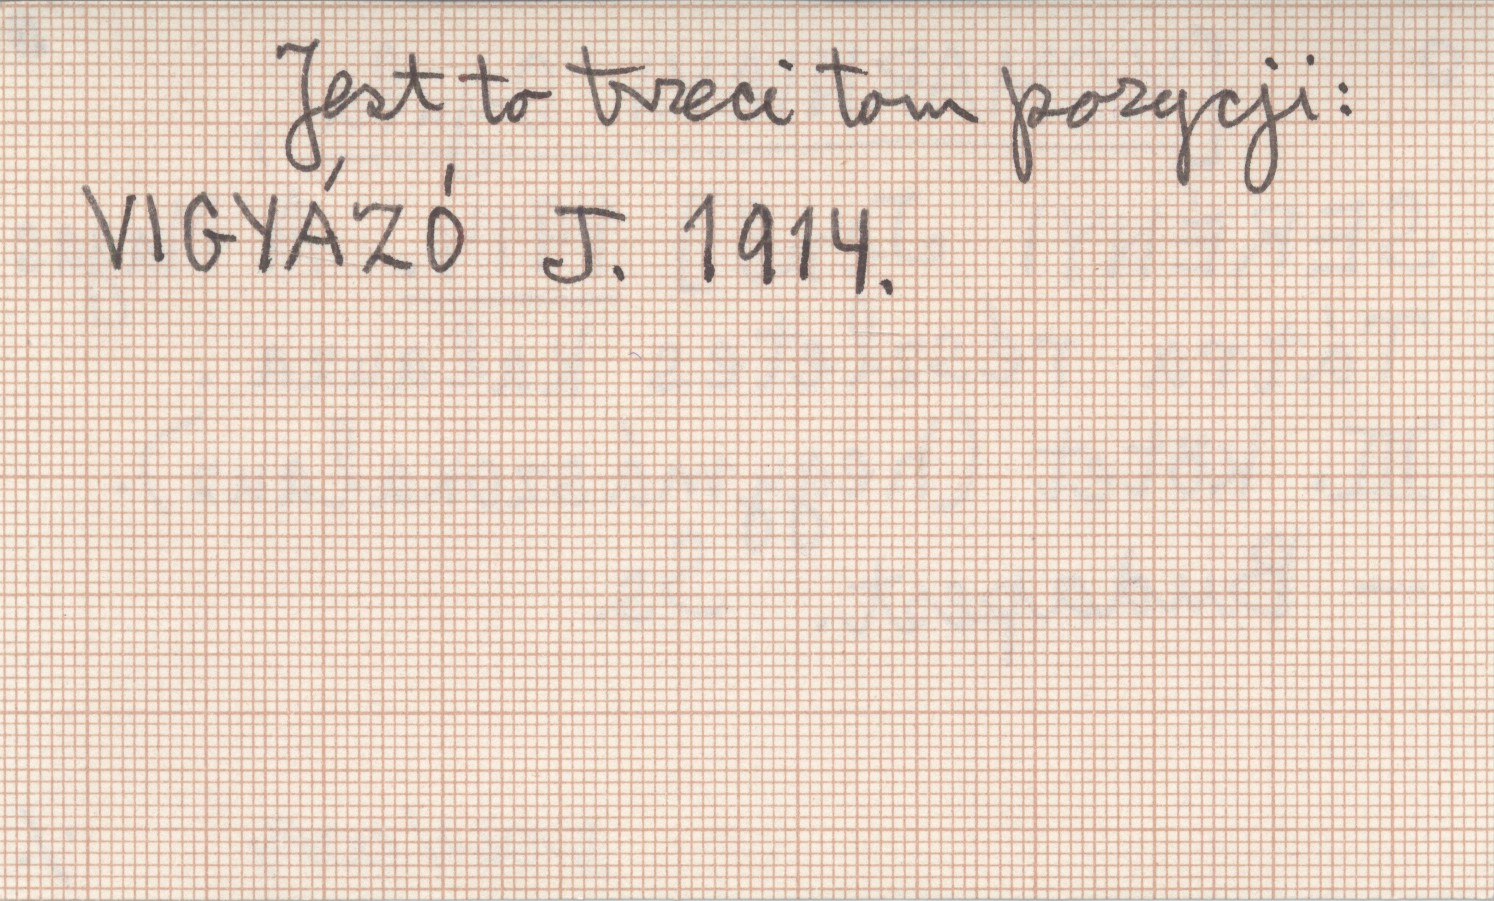 Jest to trzeci tom pozycji:
VIGYÁZÓ J. 1914.